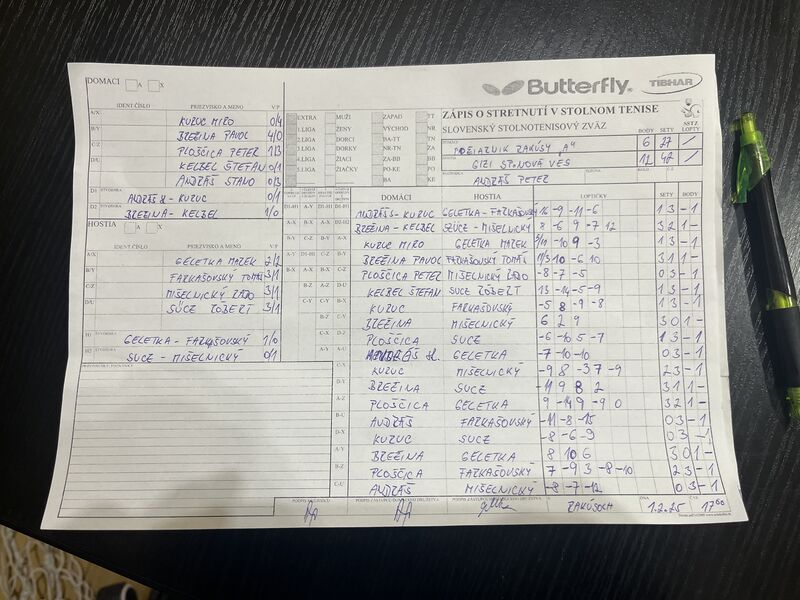 DOMACI A X
Butterfly. TIBHAR
IDENT ČÍSLO PRIEZVISKO A MENO V/P
A/X KURUC MIRO 0/4
B/Y BREŽINA PAVOL 4/0
C/Z PLOŠČICA PETER 1/3
D/U KELBEL ŠTEFAN 0/1
ANDRÁŠ STANO 0/3
D1 ŠTVORHRA ANDRÁŠ st - KURUC 0/1
D2 ŠTVORHRA BREŽINA - KELBEL 1/0
HOSTIA A X
IDENT ČÍSLO PRIEZVISKO A MENO V/P
A/X GELETKA MAREK 2/2
B/Y FARKAŠOVSKÝ TOMÁŠ 3/1
C/Z MIŠELNICKÝ RADO 3/1
D/U SUCZ RÓBERT 3/1
H1 ŠTVORHRA GELETKA - FARKAŠOVSKÝ 1/0
H2 ŠTVORHRA SUCZ - MIŠELNICKÝ 0/1
EXTRA MUŽI ZÁPAD TT
1.LIGA ŽENY VÝCHOD NR
2.LIGA DORCI BA-TT TN
3.LIGA DORKY NR-TN ZA
4.LIGA ŽIACI ZA-BB BB
5.LIGA ŽIAČKY PO-KE PO
BA KE
ZÁPIS O STRETNUTÍ V STOLNOM TENISE
SLOVENSKÝ STOLNOTENISOVÝ ZVÄZ
SSTZ
BODY SETY LOPTY
POŽIARNIK ZAKÚSY "A" 6 27 /
GIZI ŠPONOVÁ VES 12 42 /
ANDRÁŠ PETER
DOMÁCI HOSTIA LOPTIČKY SETY BODY
ANDRÁŠ - KURUC GELETKA - FARKAŠOVSKÝ 16 -9 -11 -6 1 3 - 1
BREŽINA - KELBEL SUCZ - MIŠELNICKÝ 8 -6 9 -7 12 3 2 1 -
KURUC MIRO GELETKA MAREK -10 9 -3 1 3 - 1
BREŽINA PAVOL FARKAŠOVSKÝ TOMÁŠ 10 -6 10 3 1 1 -
PLOŠČICA PETER MIŠELNICKÝ RADO -8 -7 -5 0 3 - 1
KELBEL ŠTEFAN SUCZ RÓBERT 13 -14 -5 -9 1 3 - 1
KURUC FARKAŠOVSKÝ -5 8 -9 -8 1 3 - 1
BREŽINA MIŠELNICKÝ 6 2 9 3 0 1 -
PLOŠČICA SUCZ -6 -10 5 -7 1 3 - 1
ANDRÁŠ st. GELETKA -7 -10 -10 0 3 - 1
KURUC MIŠELNICKÝ -9 8 -3 7 -9 2 3 - 1
BREŽINA SUCZ -11 9 8 2 3 1 1 -
PLOŠČICA GELETKA 9 -14 9 -9 0 3 2 1 -
ANDRÁŠ FARKAŠOVSKÝ -11 -8 -15 0 3 - 1
KURUC SUCZ -8 -6 -9 0 3 - 1
BREŽINA GELETKA 8 10 6 3 0 1 -
PLOŠČICA FARKAŠOVSKÝ 7 -9 3 -8 -10 2 3 - 1
ANDRÁŠ MIŠELNICKÝ -8 -7 -12 0 3 - 1
ZAKÚSOCH DŇA 1.2.25 ČAS 17 00